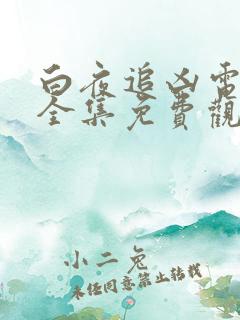 白夜追凶電
全集免費觀
小二兔
未经同意禁止转载